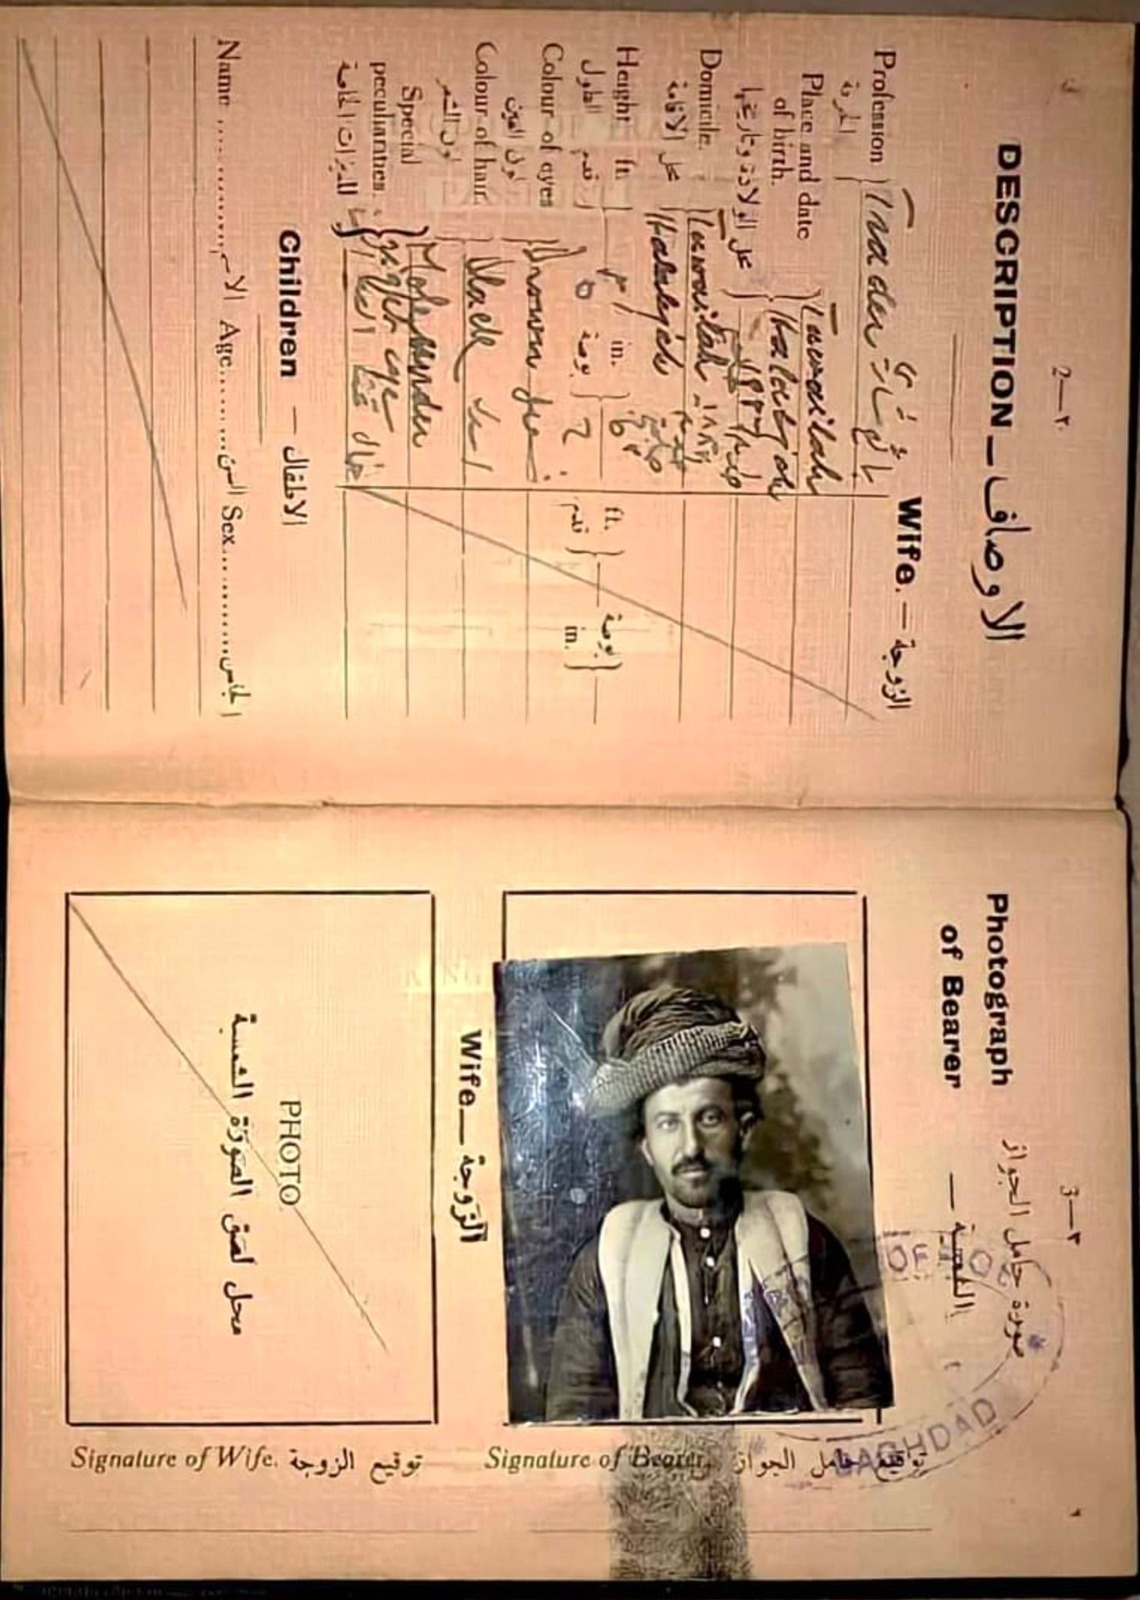 2—٢
DESCRIPTION — الاوصاف
Wife. — الزوجة
Profession الحرفة Trader
Place and date of birth. محل الولادة وتاريخها Tawailah Halabjah
Domicile. محل الاقامة Tawailah Halabjah
Height ft. in. الطول قدم بوصة 5 6
ft. قدم in. بوصة
Colour of eyes لون العين Brown
Colour of hair لون الشعر Black اسود
Special peculiarities. المميزات الخاصة Mole under right eye
Children — الاطفال
Name الاسم Age السن Sex الجنس
3—٣
Photograph of Bearer — صورة حامل الجواز الشمسية
BAGHDAD
Signature of Bearer. توقيع حامل الجواز
Wife — الزوجة
PHOTO
محل لصق الصورة الشمسية
Signature of Wife. توقيع الزوجة